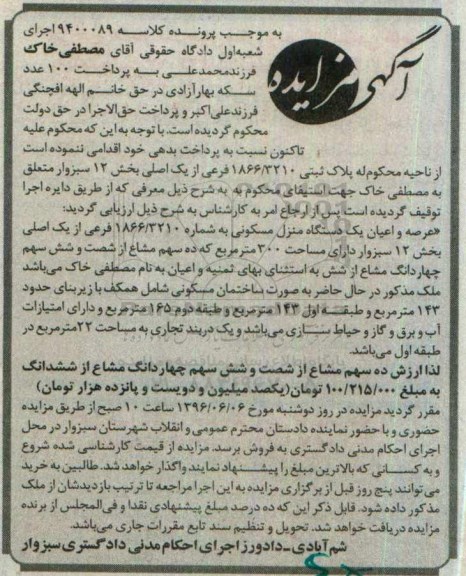 آگهی مزایده
به موجب پرونده کلاسه ۹۴۰۰۰۸۹ اجرای
شعبه‌اول دادگاه حقوقی آقای مصطفی‌خاک
فرزندمحمدعلی به پرداخت ۱۰۰ عدد
سکه بهارآزادی در حق خانم الهه افچنگی
فرزندعلی‌اکبر و پرداخت حق‌الاجرا در حق دولت
محکوم گردیده است. با توجه به این که محکوم علیه
تاکنون نسبت به پرداخت بدهی خود اقدامی ننموده است
از ناحیه محکوم‌له پلاک ثبتی ۱۸۶۶/۳۲۱۰ فرعی از یک اصلی بخش ۱۲ سبزوار متعلق
به مصطفی خاک جهت استیفای محکوم به به شرح ذیل معرفی که از طریق دایره اجرا
توقیف گردیده است پس از ارجاع امر به کارشناس به شرح ذیل ارزیابی گردید:
«عرصه و اعیان یک دستگاه منزل مسکونی به شماره ۱۸۶۶/۳۲۱۰ فرعی از یک اصلی
بخش ۱۲ سبزوار دارای مساحت ۳۰۰ مترمربع که ده سهم مشاع از شصت و شش سهم
چهاردانگ مشاع از شش به استثنای بهای ثمنیه و اعیان به نام مصطفی خاک می‌باشد
ملک مذکور در حال حاضر به صورت ساختمان مسکونی شامل همکف با زیربنای حدود
۱۴۳ مترمربع و طبقه اول ۱۴۳ مترمربع و طبقه دوم ۱۶۵ مترمربع و دارای امتیازات
آب و برق و گاز و حیاط سازی می‌باشد و یک دربند تجاری به مساحت ۲۲مترمربع در
طبقه اول می‌باشد.
لذا ارزش ده سهم مشاع از شصت و شش سهم چهاردانگ مشاع از ششدانگ
به مبلغ ۱۰۰/۲۱۵/۰۰۰ تومان(یکصد میلیون و دویست و پانزده هزار تومان)
مقرر گردید مزایده در روز دوشنبه مورخ ۱۳۹۶/۰۶/۰۶ ساعت ۱۰ صبح از طریق مزایده
حضوری و با حضور نماینده دادستان محترم عمومی و انقلاب شهرستان سبزوار در محل
اجرای احکام مدنی دادگستری به فروش برسد. مزایده از قیمت کارشناسی شده شروع
و به کسانی که بالاترین مبلغ را پیشنهاد نمایند واگذار خواهد شد. طالبین به خرید
می‌توانند پنج روز قبل از برگزاری مزایده به این اجرا مراجعه تا ترتیب بازدیدشان از ملک
مذکور داده شود. قابل ذکر این که ده درصد مبلغ پیشنهادی نقدا و فی‌المجلس از برنده
مزایده دریافت خواهد شد. تحویل و تنظیم سند تابع مقررات جاری می‌باشد.
شم‌آبادی-دادورز اجرای احکام مدنی دادگستری سبزوار